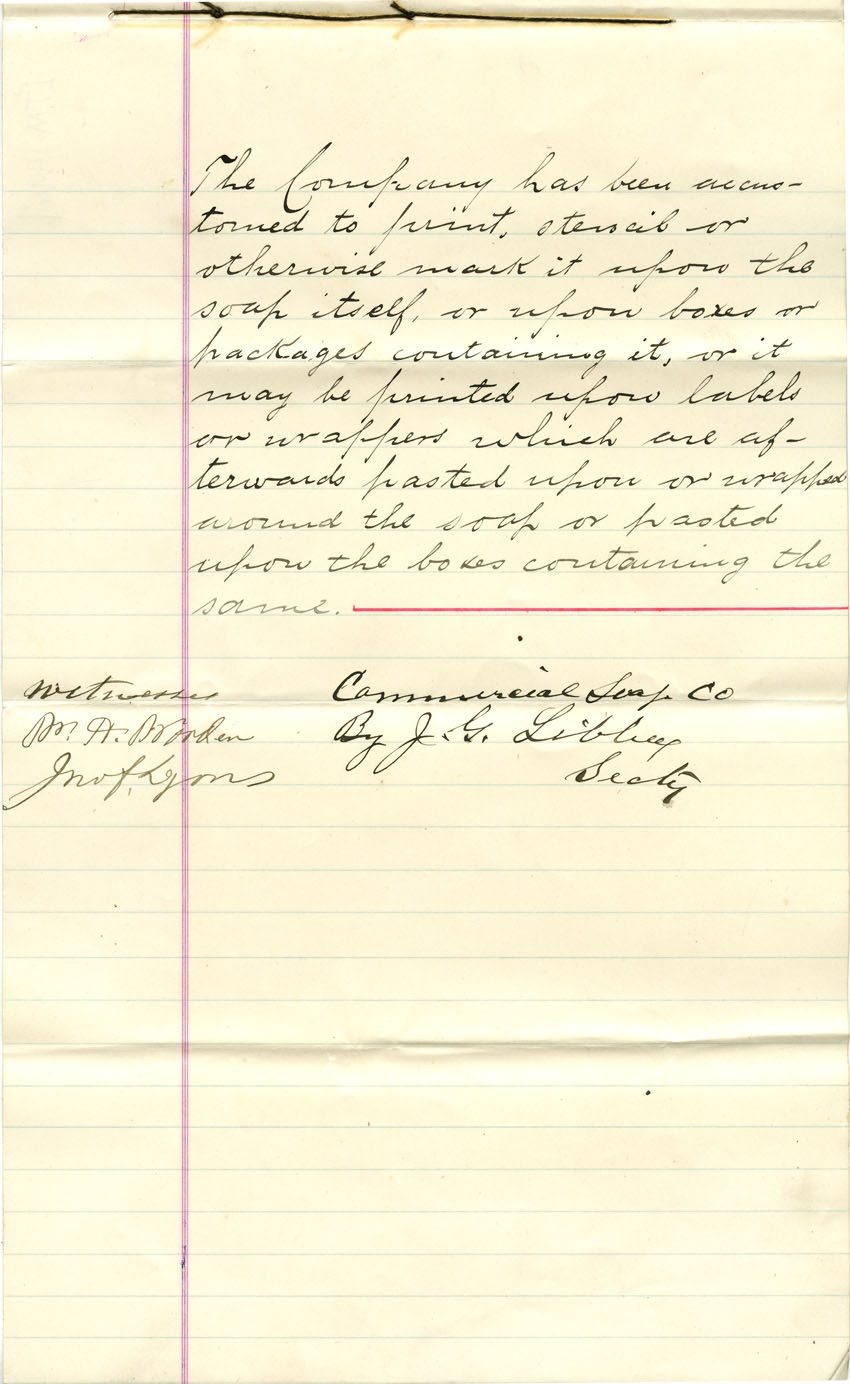 The Company has been accus-
tomed to print, stencil or
otherwise mark it upon the
soap itself, or upon boxes or
packages containing it, or it
may be printed upon labels
or wrappers which are af-
terwards pasted upon or wrapped
around the soap or pasted
upon the boxes containing the
same.
Witnesses Commercial Soap Co
H. By J. G. Libbey
Jno Lyons Secty